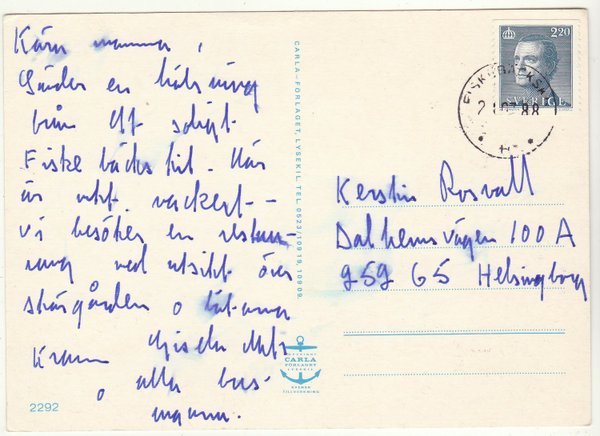 Kära mamma,
Sänder en hälsning
från ett soligt
Fiskebäckskil. Här
är vackert –
Vi besöker en restau-
rang med utsikt över
skärgården o båtarna
Kram Gisela Mats
o alla bus-
ungarna.
2292
CARLA-FÖRLAGET, LYSEKIL TEL 0523/109 19, 109 09.
CARLA
FÖRLAGET
LYSEKIL
2.20
SVERIGE
FISKEBÄCKSKIL
88
Kerstin Rosvall
Dalhemsvägen 100 A
Helsingborg